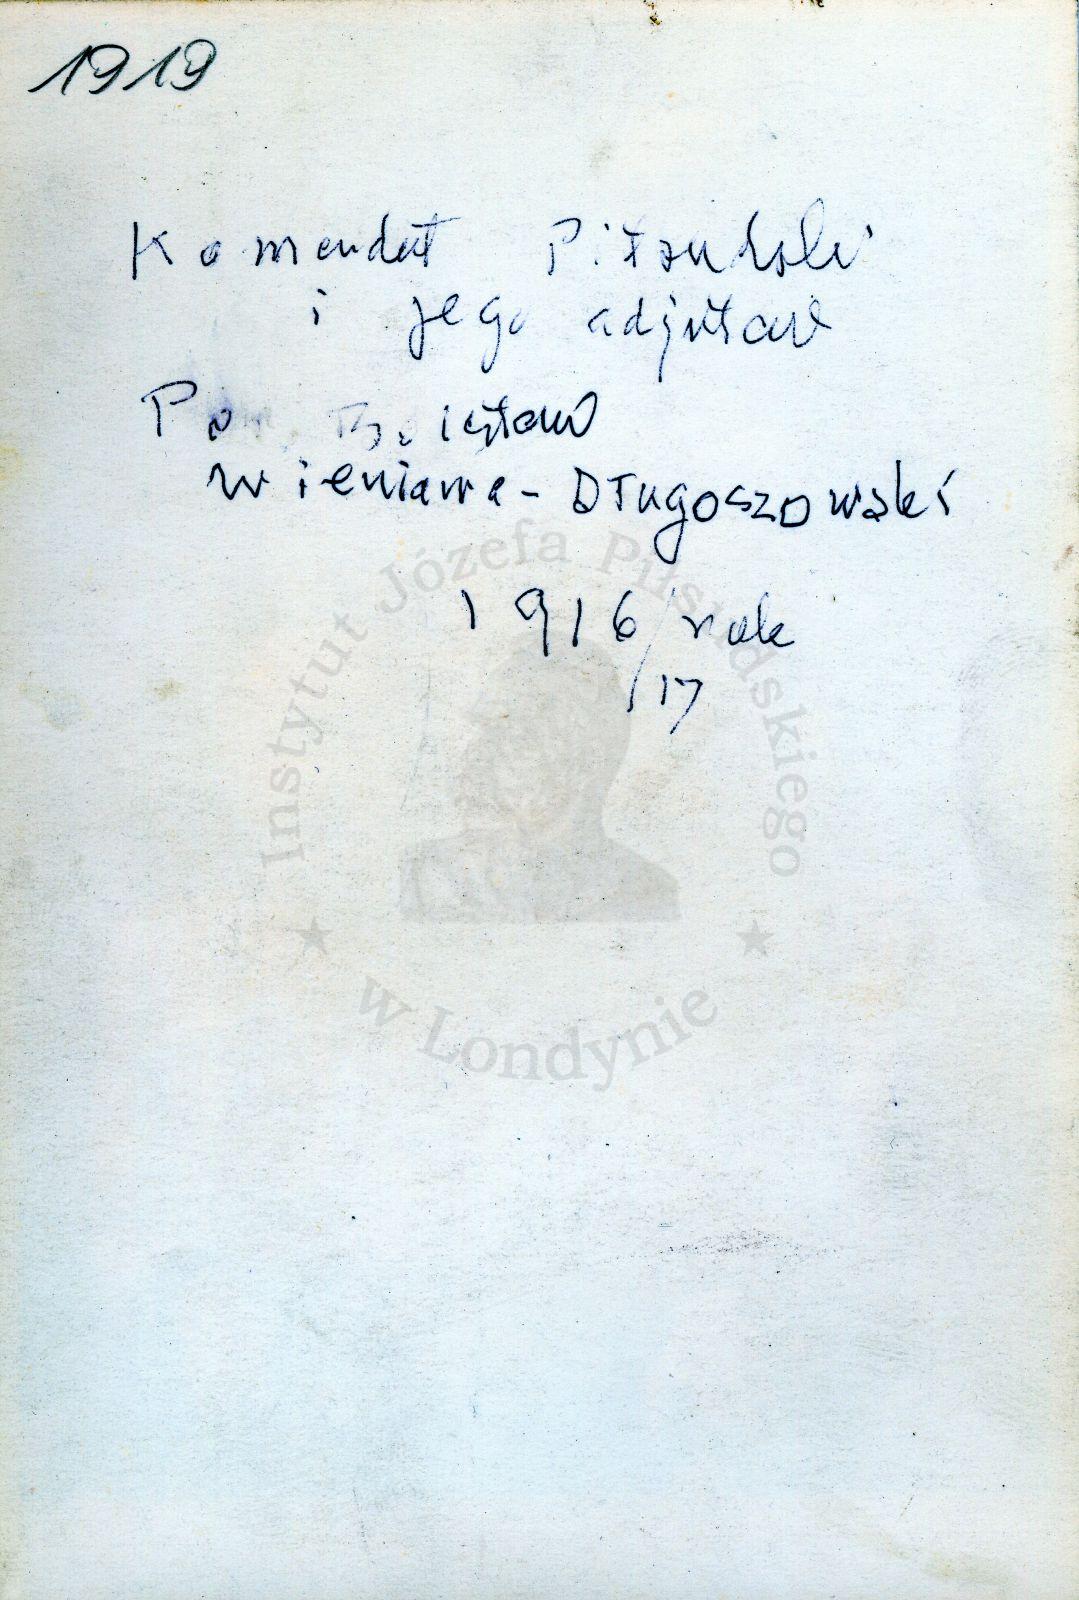 1919
Komendat Piłsudski
i jego adjutant
Por. Bolesław
Wieniawa-Długoszowski
1916/rok
/17
Instytut Józefa Piłsudskiego
w Londynie